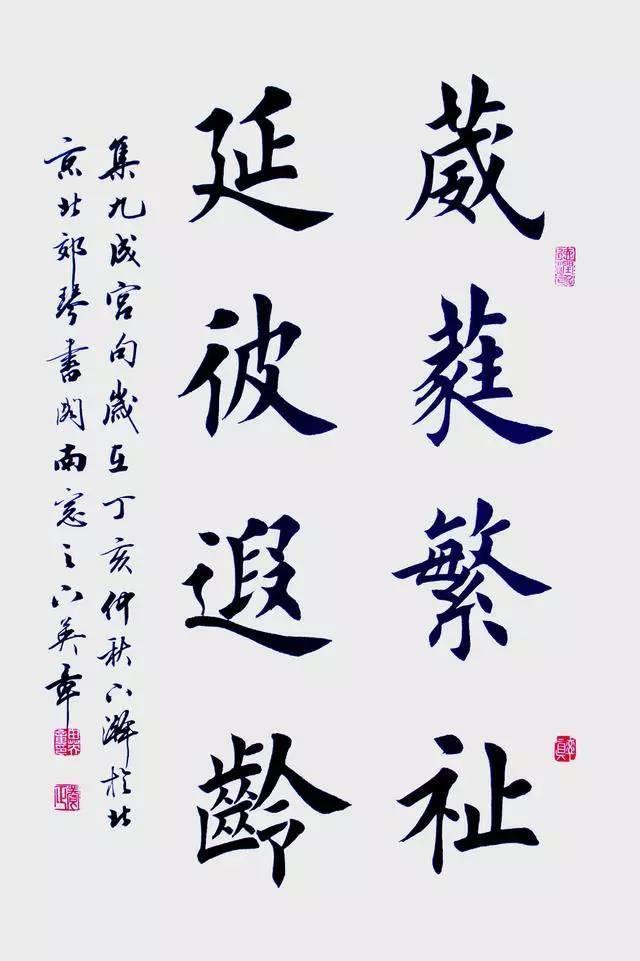 葳蕤繁祉
延彼遐齡
集九成宮句歲在丁亥仲秋下澣於北
京北郊琴書閣南窓之下英章